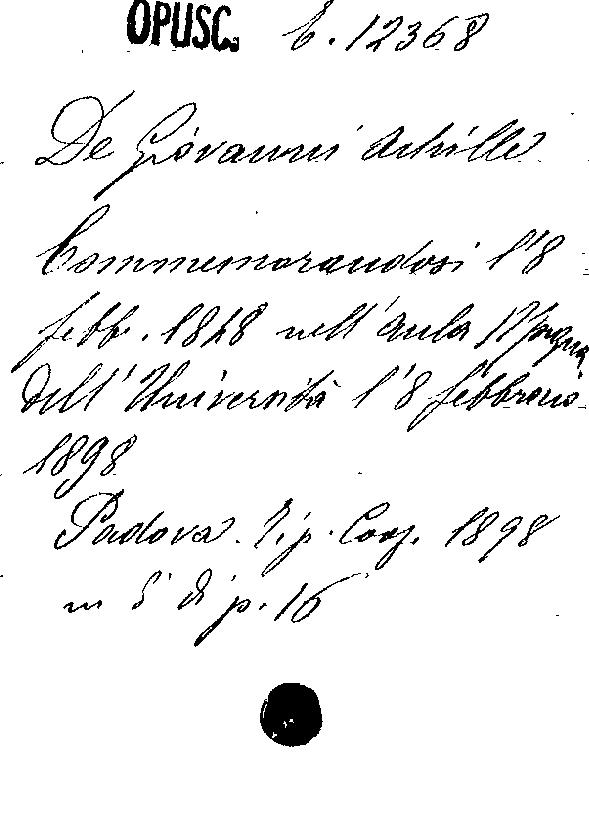 OPUSC. C. 12368
De Giovanni Achille
Commemorandosi l'8
febb. 1848 nell'aula Magna
dell'Università l'8 febbraio
1898
Padova. Tip. Coop. 1898
in 8° di p. 16